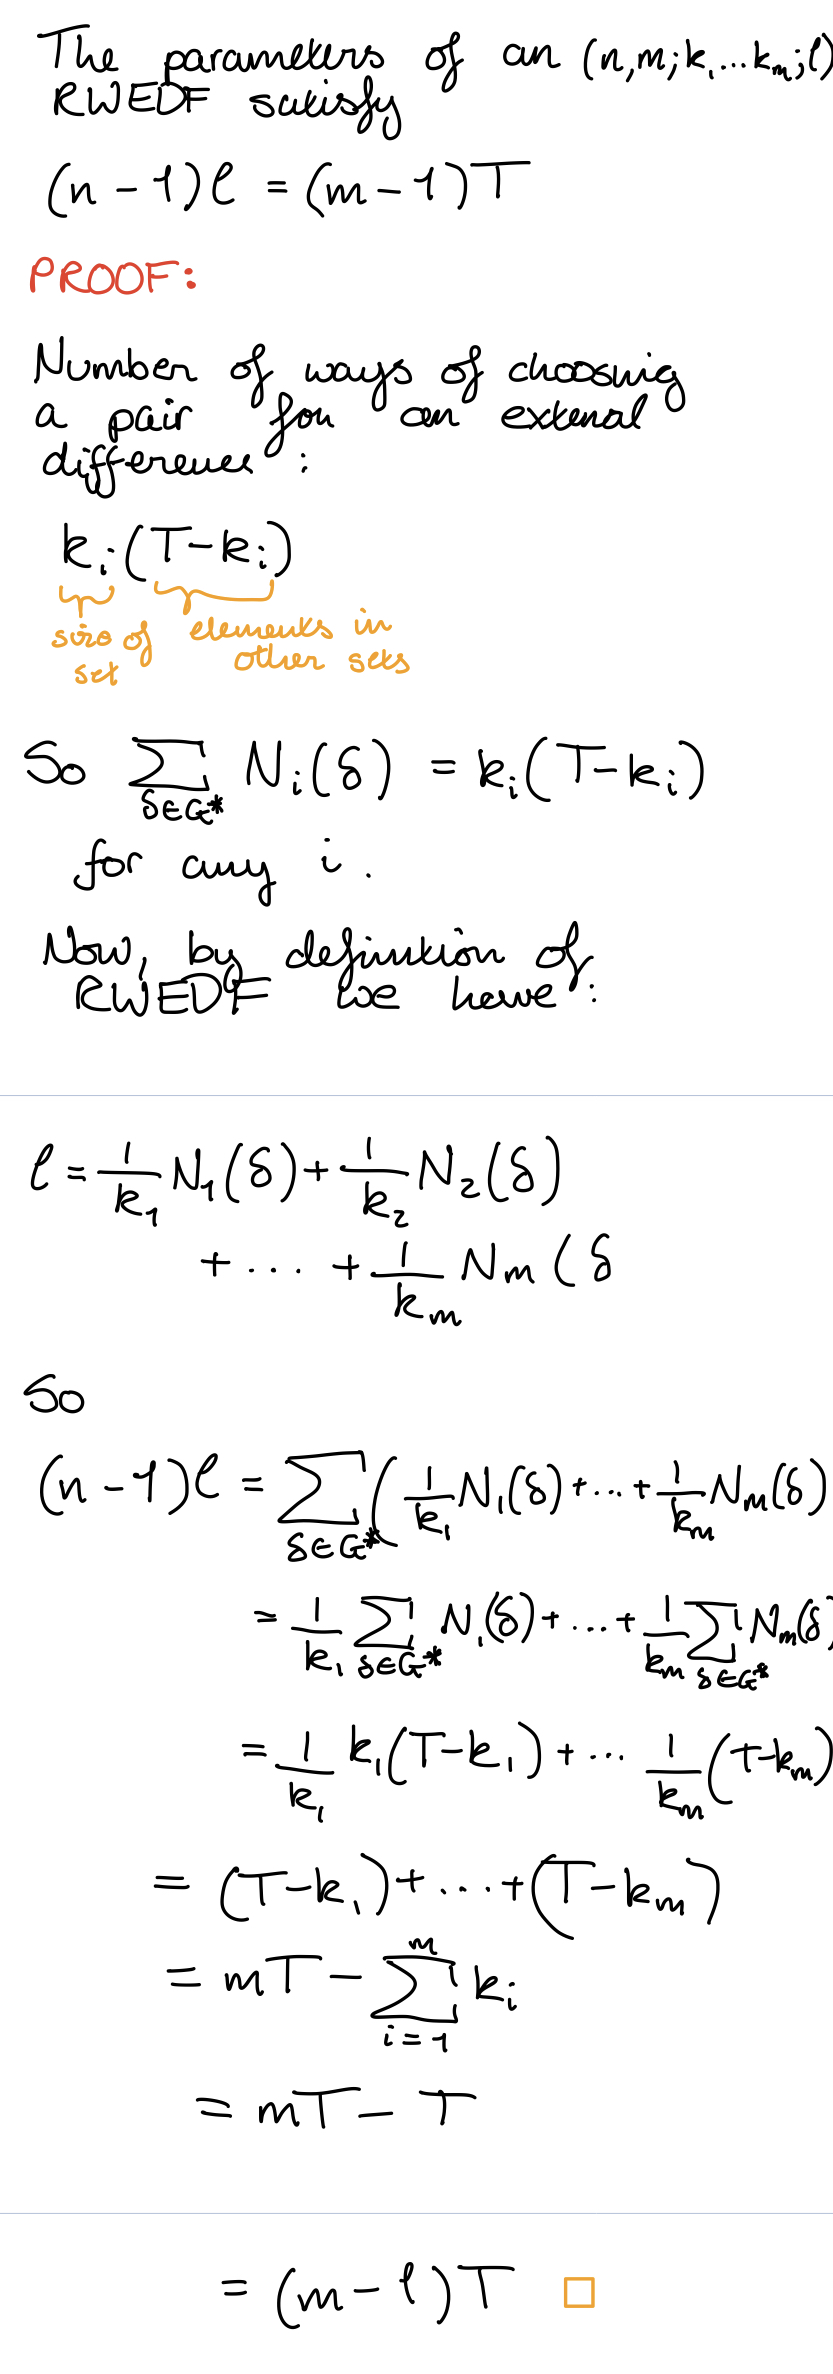 The parameters of an (n,m;k₁...kₘ;ℓ)
RWEDF satisfy
(n-1)ℓ = (m-1)T
PROOF:
Number of ways of choosing
a pair for an external
difference :
kᵢ(T-kᵢ)
size of set
elements in other sets
So ∑_{δ∈G*} Nᵢ(δ) = kᵢ(T-kᵢ)
for any i.
Now, by definition of
RWEDF we have:
ℓ = 1/k₁ N₁(δ) + 1/k₂ N₂(δ)
+ ... + 1/kₘ Nₘ(δ
So
(n-1)ℓ = ∑_{δ∈G*} ( 1/k₁ N₁(δ) + ... + 1/kₘ Nₘ(δ)
= 1/k₁ ∑_{δ∈G*} N₁(δ) + ... + 1/kₘ ∑_{δ∈G*} Nₘ(δ)
= 1/k₁ k₁(T-k₁) + ... 1/kₘ (T-kₘ)
= (T-k₁) + ... + (T-kₘ)
= mT - ∑_{i=1}^{m} kᵢ
= mT - T
= (m-1)T □